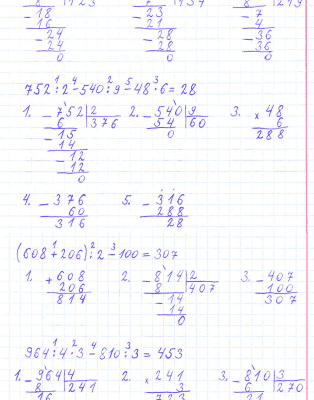 - 18
- 23
- 7
16
21
4
- 24
- 28
- 36
24
28
36
0
0
0
752:2-540:9-48·6=28
1. - 752 | 2
6 | 376
- 15
14
- 12
12
0
2. - 540 | 9
54 | 60
0
3. × 48
6
288
4. - 376
60
316
5. - 316
288
28
(608+206):2-100=307
1. + 608
206
814
2. - 814 | 2
8 | 407
- 14
14
0
3. - 407
100
307
964:4·3-810:3=453
1. - 964 | 4
8 | 241
16
2. × 241
3
723
3. - 810 | 3
6 | 270
21